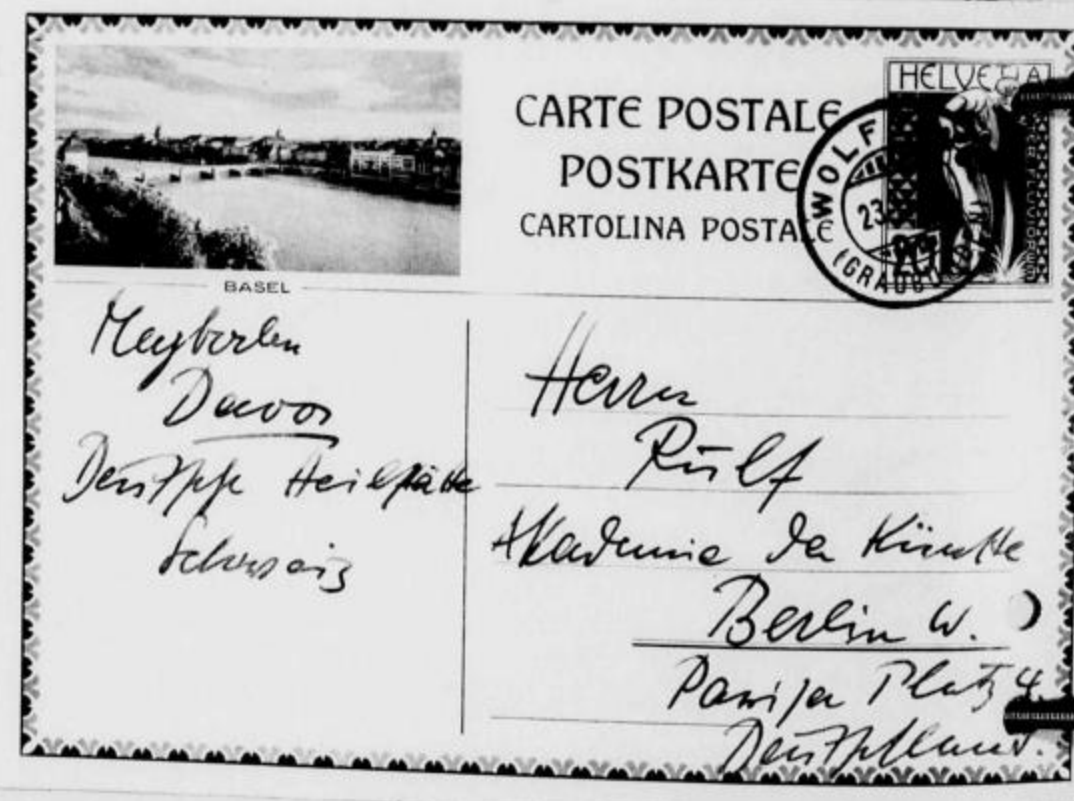 CARTE POSTALE
POSTKARTE
CARTOLINA POSTALE
HELVETIA
WOLF
23
(GRAUBÜ
BASEL
Davos
Deutsche Heilstätte
Schweiz
Herrn
Rülf
Akademie der Künste
Berlin W.
Pariser Platz 4.
Deutschland.